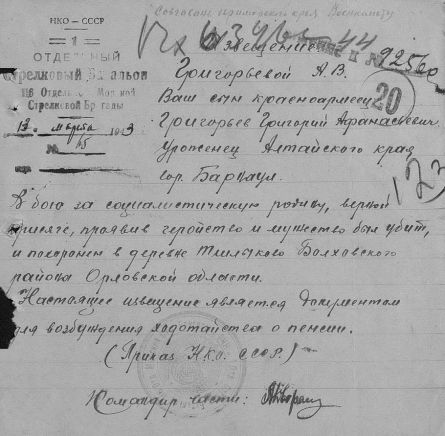 Согласно Приморского края Военкомату
НКО — СССР
1
ОТДЕЛЬНЫЙ
Стрелковый Батальон
116 Отдельной Морской
Стрелковой Бригады
13 марта 1943
№ 65
Извещение
44
9256
20
123
Григорьевой А.В.
Ваш сын красноармеец
Григорьев Григорий Афанасьевич
уроженец Алтайского края
гор. Барнаул.
В бою за социалистическую родину, верный
присяге, проявив геройство и мужество был убит,
и похоронен в деревне Болховского
района Орловской области.
Настоящее извещение является документом
для возбуждения ходотайства о пенсии.
(Приказ Н.К.О. СССР)
Командир части: